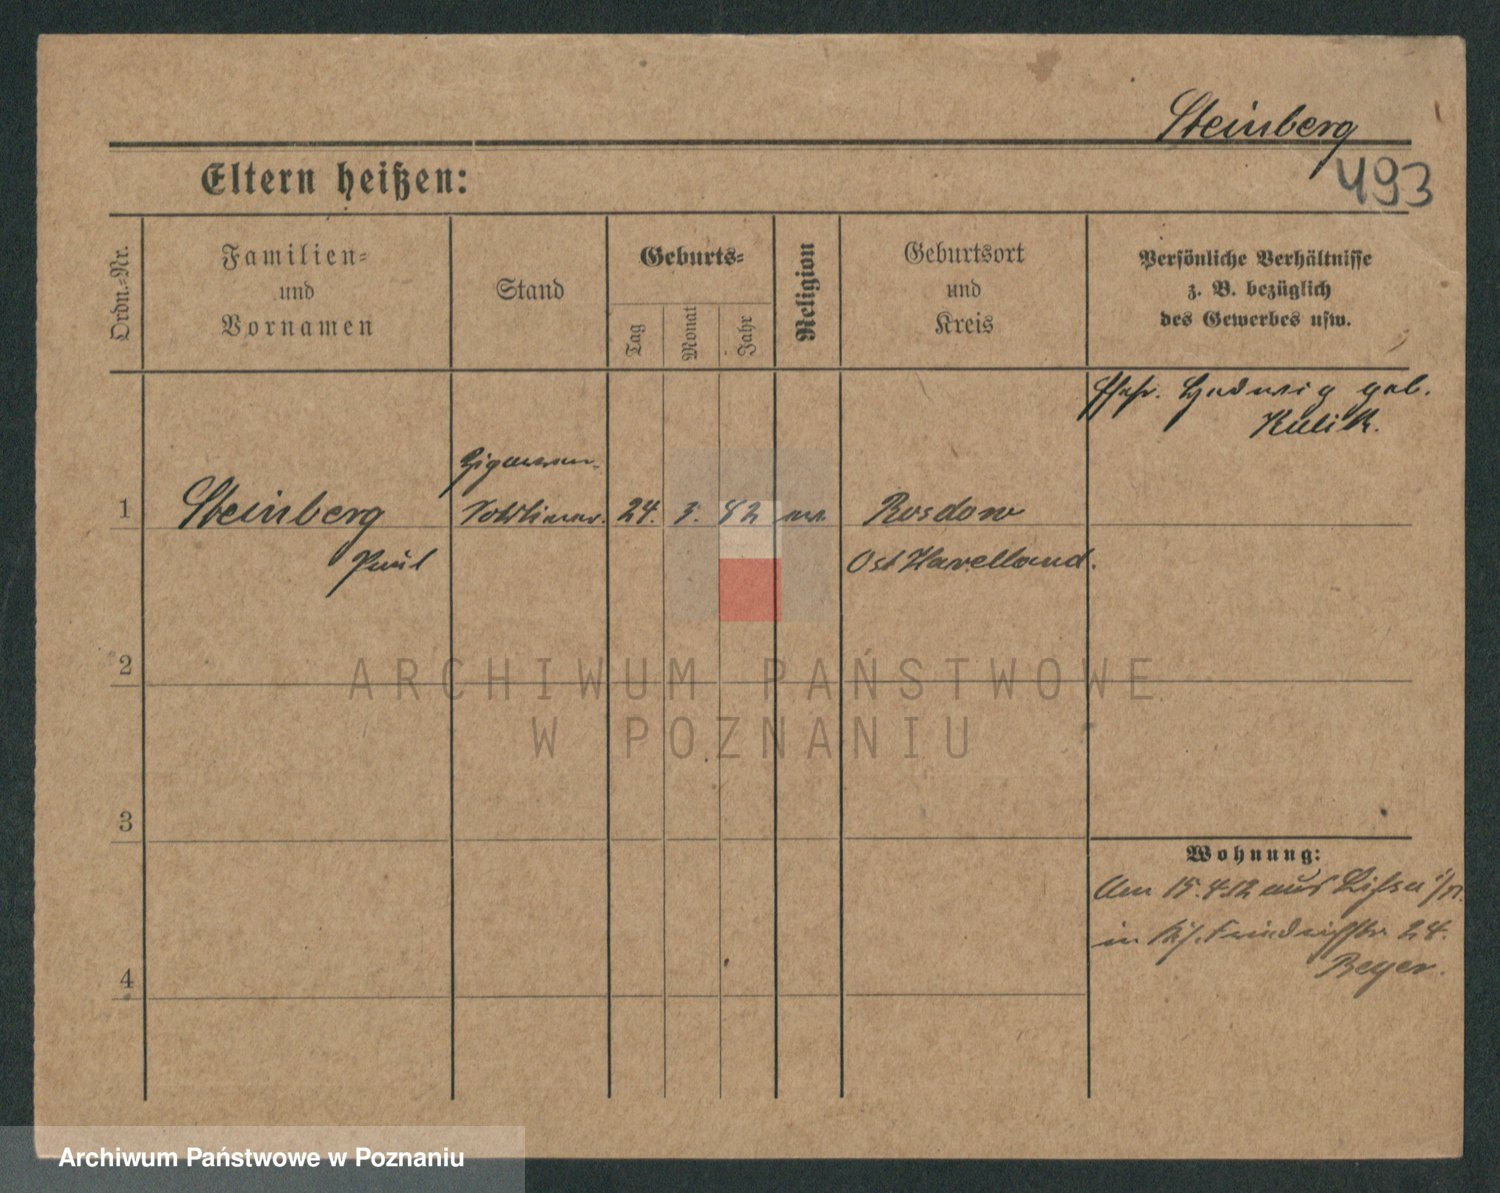 Steinberg
493
Eltern heißen:
Ordn.-Nr.
Familien-
und
Vornamen
Stand
Geburts-
Tag
Monat
Jahr
Religion
Geburtsort
und
Kreis
Persönliche Verhältnisse
z. B. bezüglich
des Gewerbes usw.
Ehefr. Hedwig geb.
Kulik.
Zigarren-
1 Steinberg Sortierer. 24. 3. 82 ev. Rosdow
Paul Ost Havelland.
2
3
4
Wohnung:
Am 15.4.12 aus Lissa i/P.
in Friedrichstr 24.
Beyer.
ARCHIWUM PAŃSTWOWE
W POZNANIU
Archiwum Państwowe w Poznaniu